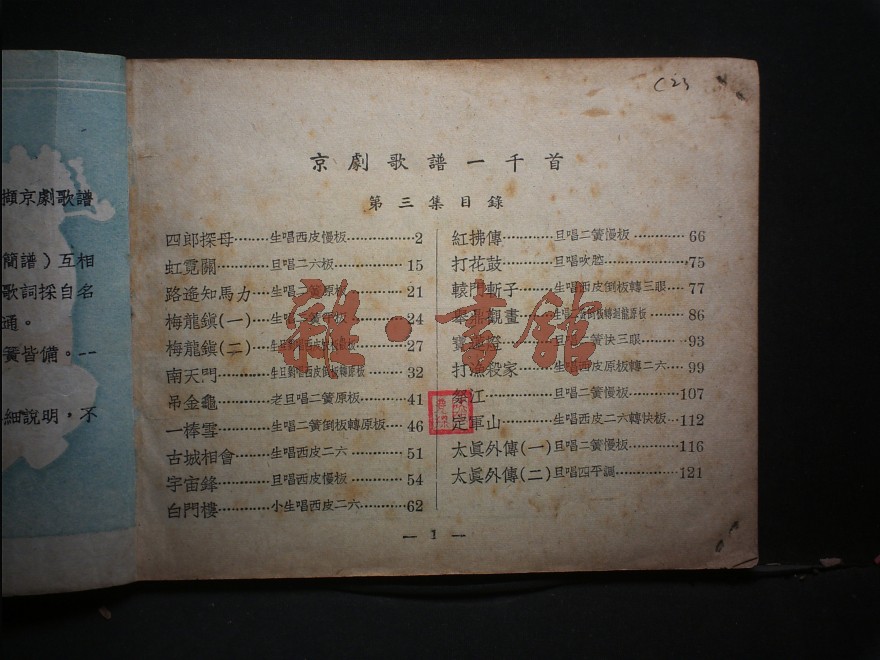 擷京劇歌譜
簡譜）互相
歌詞採自名
通。
簧皆備。--
細說明，不
C25
京劇歌譜一千首
第三集目錄
四郎探母………生唱西皮慢板…………2
虹霓關…………旦唱二六板…………15
路遙知馬力……生唱二簧原板…………21
梅龍鎭(一)……24
梅龍鎭(二)……27
南天門…………生旦對唱西皮倒板轉原板……32
吊金龜…………老旦唱二簧原板………41
一棒雪…………生唱二簧倒板轉原板…46
古城相會………生唱西皮二六…………51
宇宙鋒…………旦唱西皮慢板…………54
白門樓…………小生唱西皮二六………62
紅拂傳…………旦唱二簧慢板…………66
打花鼓…………旦唱吹腔…………75
轅門斬子………生唱西皮倒板轉三眼…77
觀畫………86
旦唱二簧快三眼……93
打漁殺家………生唱西皮原板轉二六…99
江…………旦唱二簧慢板…………107
定軍山…………生唱西皮二六轉快板…112
太眞外傳(一)旦唱二簧慢板…………116
太眞外傳(二)旦唱四平調…………121
— 1 —
雜·書館